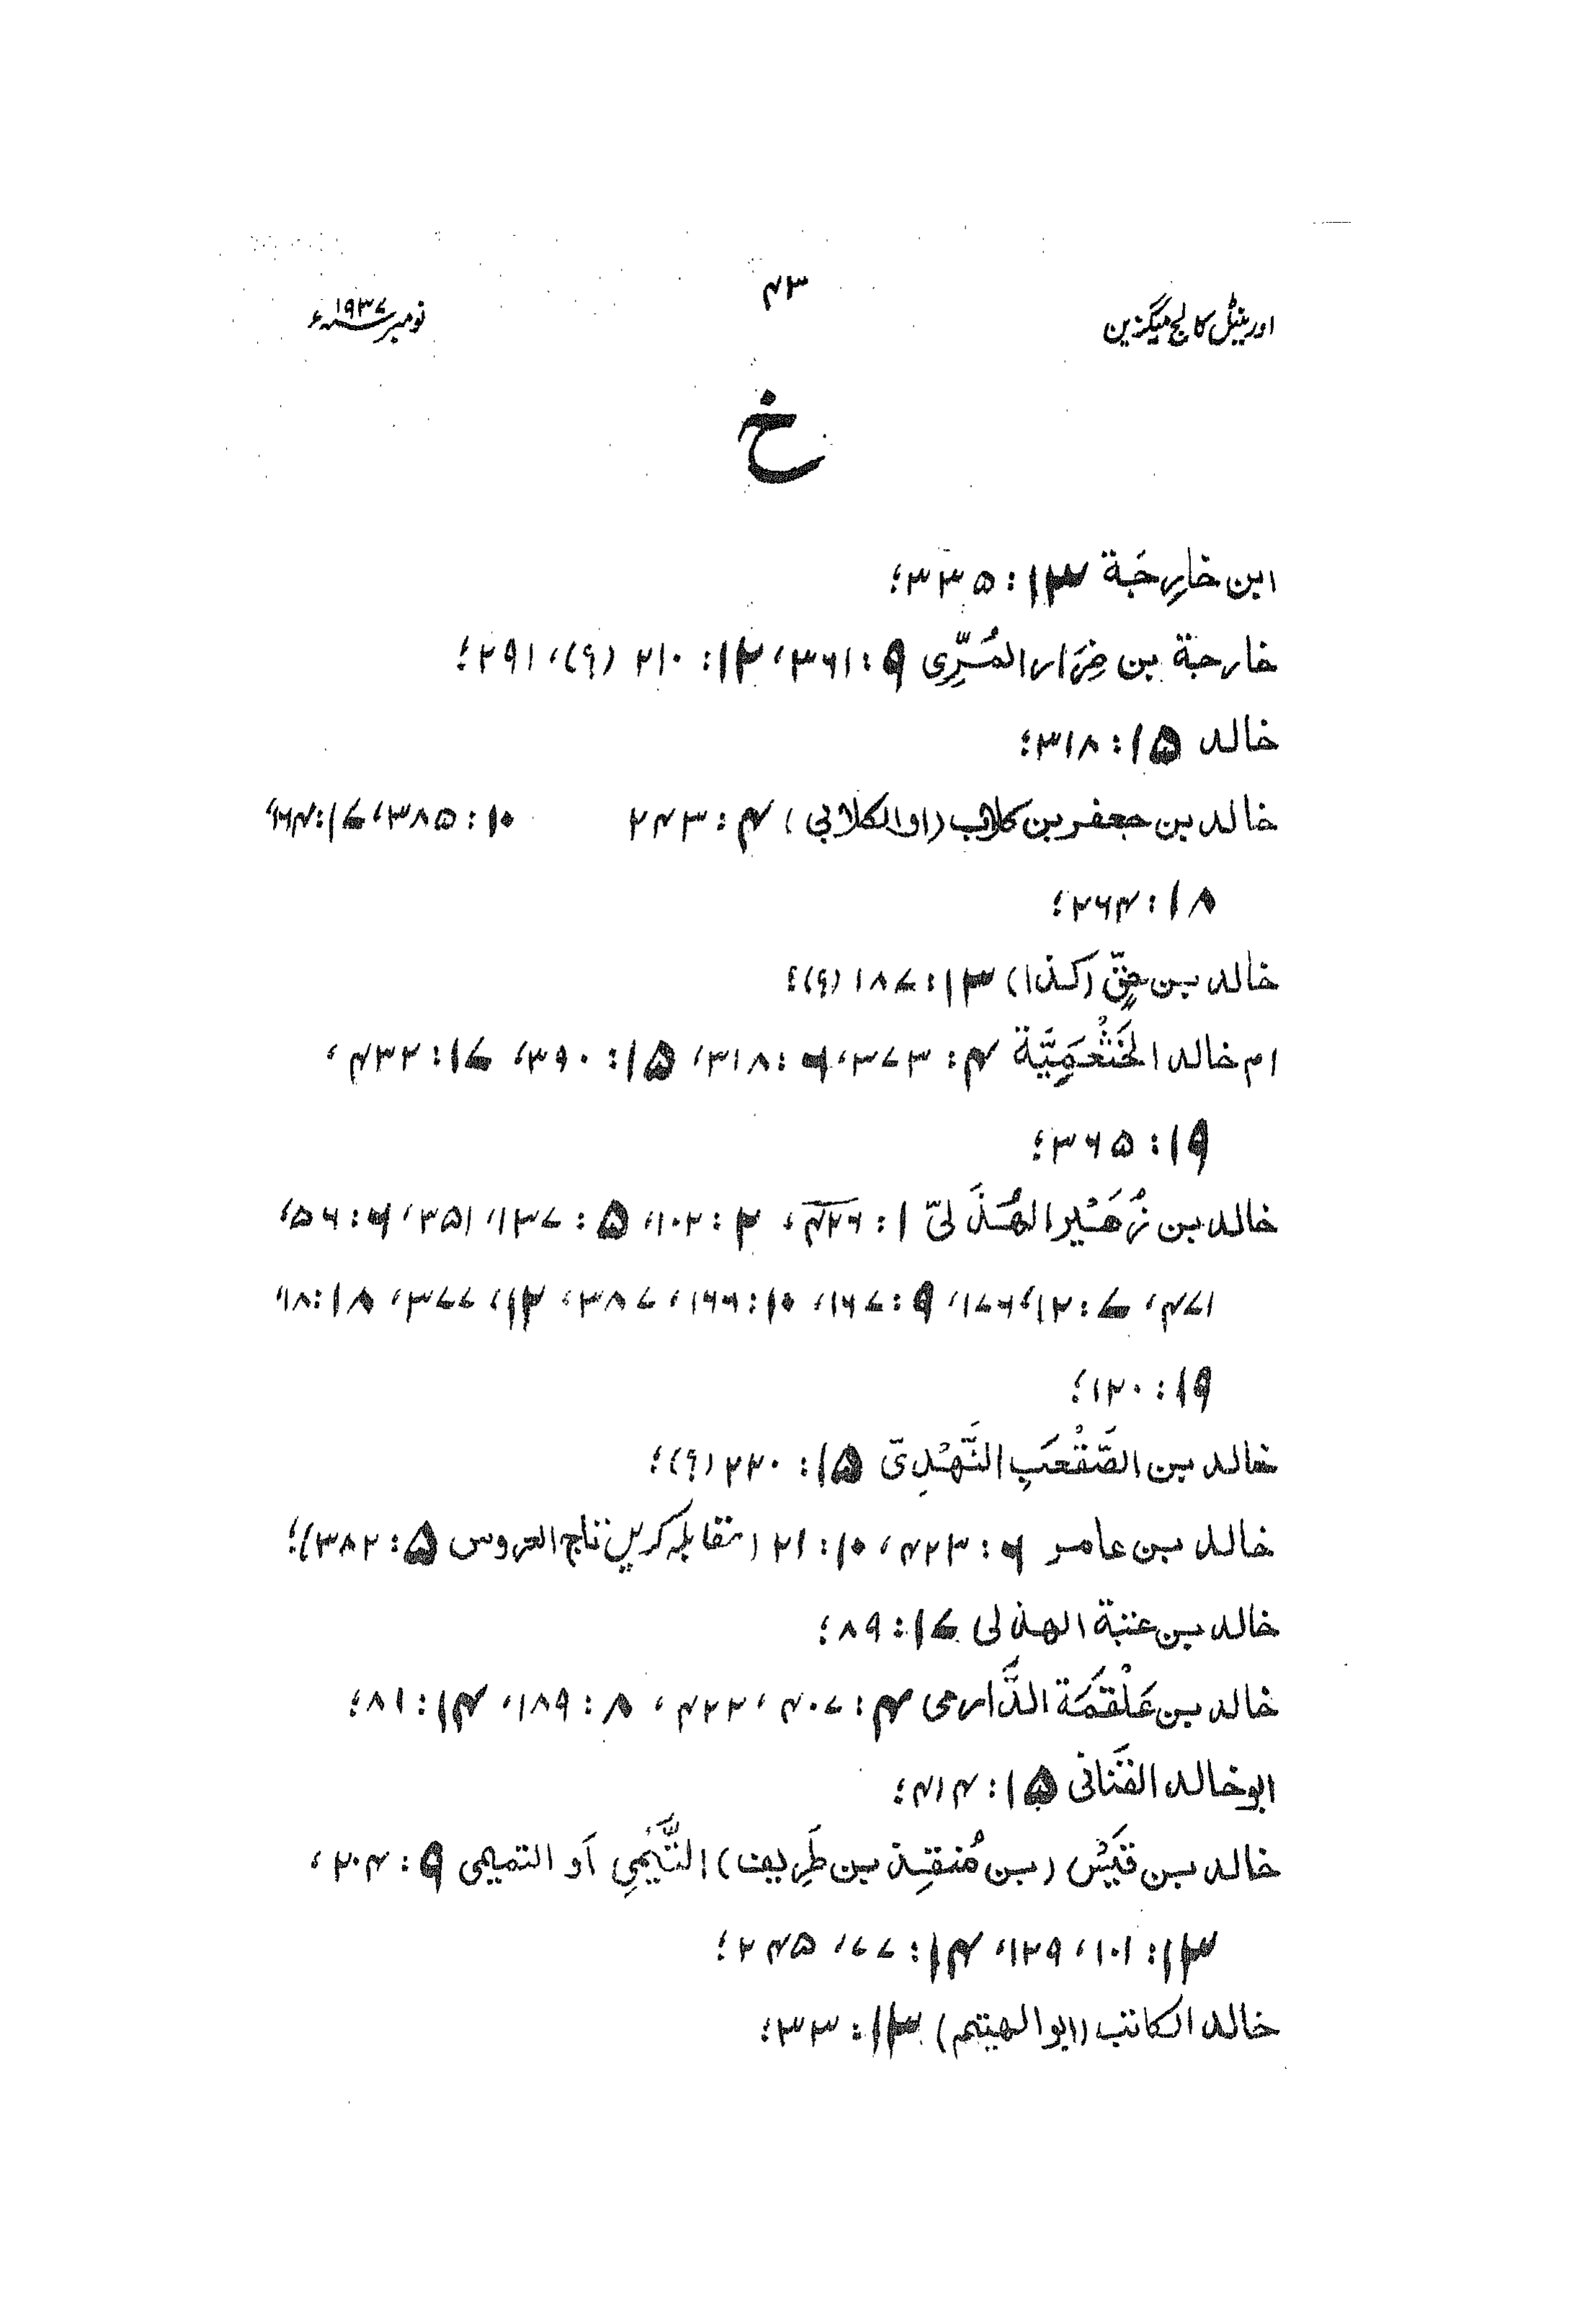 اورینٹل کالج میگزین
۴۳
نومبر ۱۹۳۷ء
خ
ابن خارِجَة ۱۳: ۳۳۵؛
خارجة بن ضِرَار المُرِّی ۹: ۳۶۱، ۱۲: ۲۱۰ (؟)، ۲۹۱؛
خالد ۱۵: ۳۱۸؛
خالد بن جعفر بن کلاب (او الکلابی) ۴: ۲۴۳ ۱۰: ۳۸۵، ۱۷: ۶۴،
۱۸: ۲۶۴؛
خالد بن حِقّ (کذا) ۱۳: ۱۸۷ (؟)؛
ام خالد الخَثْعَمِیَّة ۴: ۳۷۳، ۶: ۳۱۸، ۱۵: ۳۹۰، ۱۷: ۴۳۲،
۱۹: ۳۶۵؛
خالد بن زُهَیْر الهُذَلیّ ۱: ۴۲۶، ۲: ۱۰۲، ۵: ۱۳۷، ۳۵۱، ۶: ۵۶،
۴۷۱، ۷: ۱۲، ۱۷۶، ۹: ۱۶۷، ۱۰: ۱۶۶، ۳۸۷، ۱۲، ۳۷۷، ۱۸: ۱۸،
۱۹: ۱۲۰؛
خالد بن الصَّقْعَبِ النَّهْدِیّ ۱۵: ۲۲۰ (؟)؛
خالد بن عامر ۶: ۴۲۳، ۱۰: ۲۱ (مقابلہ کریں تاج العروس ۵: ۳۸۲)؛
خالد بن عتبة الهذلی ۱۷: ۸۹؛
خالد بن عَلْقَمَة الدَّارمی ۴: ۴۰۷، ۴۲۲، ۸: ۱۸۹، ۱۴: ۸۱؛
ابو خالد القَنانی ۱۵: ۴۱۴؛
خالد بن قَیْس (بن مُنقِذ بن طَرِیف) التَّیْمِی أو التمیمی ۹: ۲۰۴،
۱۳: ۱۰۱، ۱۲۹، ۱۴: ۷۷، ۲۴۵؛
خالد الکاتب (ابو الهیثم) ۱۳: ۳۳؛